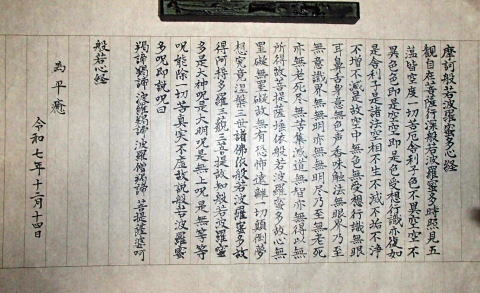 摩訶般若波羅蜜多心経
観自在菩薩行深般若波羅蜜多時照見五
蘊皆空度一切苦厄舎利子色不異空空不
異色色即是空空即是色受想行識亦復如
是舎利子是諸法空相不生不滅不垢不浄
不増不減是故空中無色無受想行識無眼
耳鼻舌身意無色声香味触法無眼界乃至
無意識界無無明亦無無明尽乃至無老死
亦無老死尽無苦集滅道無智亦無得以無
所得故菩提薩埵依般若波羅蜜多故心無
罣礙無罣礙故無有恐怖遠離一切顛倒夢
想究竟涅槃三世諸佛依般若波羅蜜多故
得阿耨多羅三藐三菩提故知般若波羅蜜
多是大神呪是大明呪是無上呪是無等等
呪能除一切苦真実不虚故説般若波羅蜜
多呪即説呪曰
羯諦羯諦波羅羯諦波羅僧羯諦菩提薩婆呵
般若心経
為平癒
令和七年十二月十四日